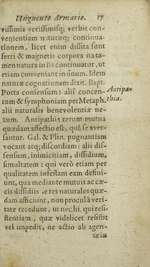 Unguento Armario. 17
vissimis verissimisq; verbis con-
venientiam naturæq; continua-
tionem, licet enim dissita sunt
ferri & magnetis corpora natu-
men natura in iis continuatur, ut
etiam conveniant in unum. Idem
naturæ cognationem dixit. Bapt.
Porta consensum: alii concen-
tum & symphoniam per Metaph.
alii naturalis benevolentiæ ne-
xum. Antipathia rerum mutua
quædam affectio est, quâ se ever-
Gal. & Plin. pugnantiam
vocant atq; discordiam: alii dis-
sensum, inimicitiam, dissidium,
similatem: qui verò etiam per
qualitatem infestam eam defini-
unt, qua mediante mutuò ac cæ-
cis dissidiis res naturales quæ-
dam afficiuntur, non procul à veri-
tate recedunt, ut nec hi, qui resi-
stentiam, quæ videlicet resistit
vel impedit, ne actio ab agen-
Antipa-
thia.